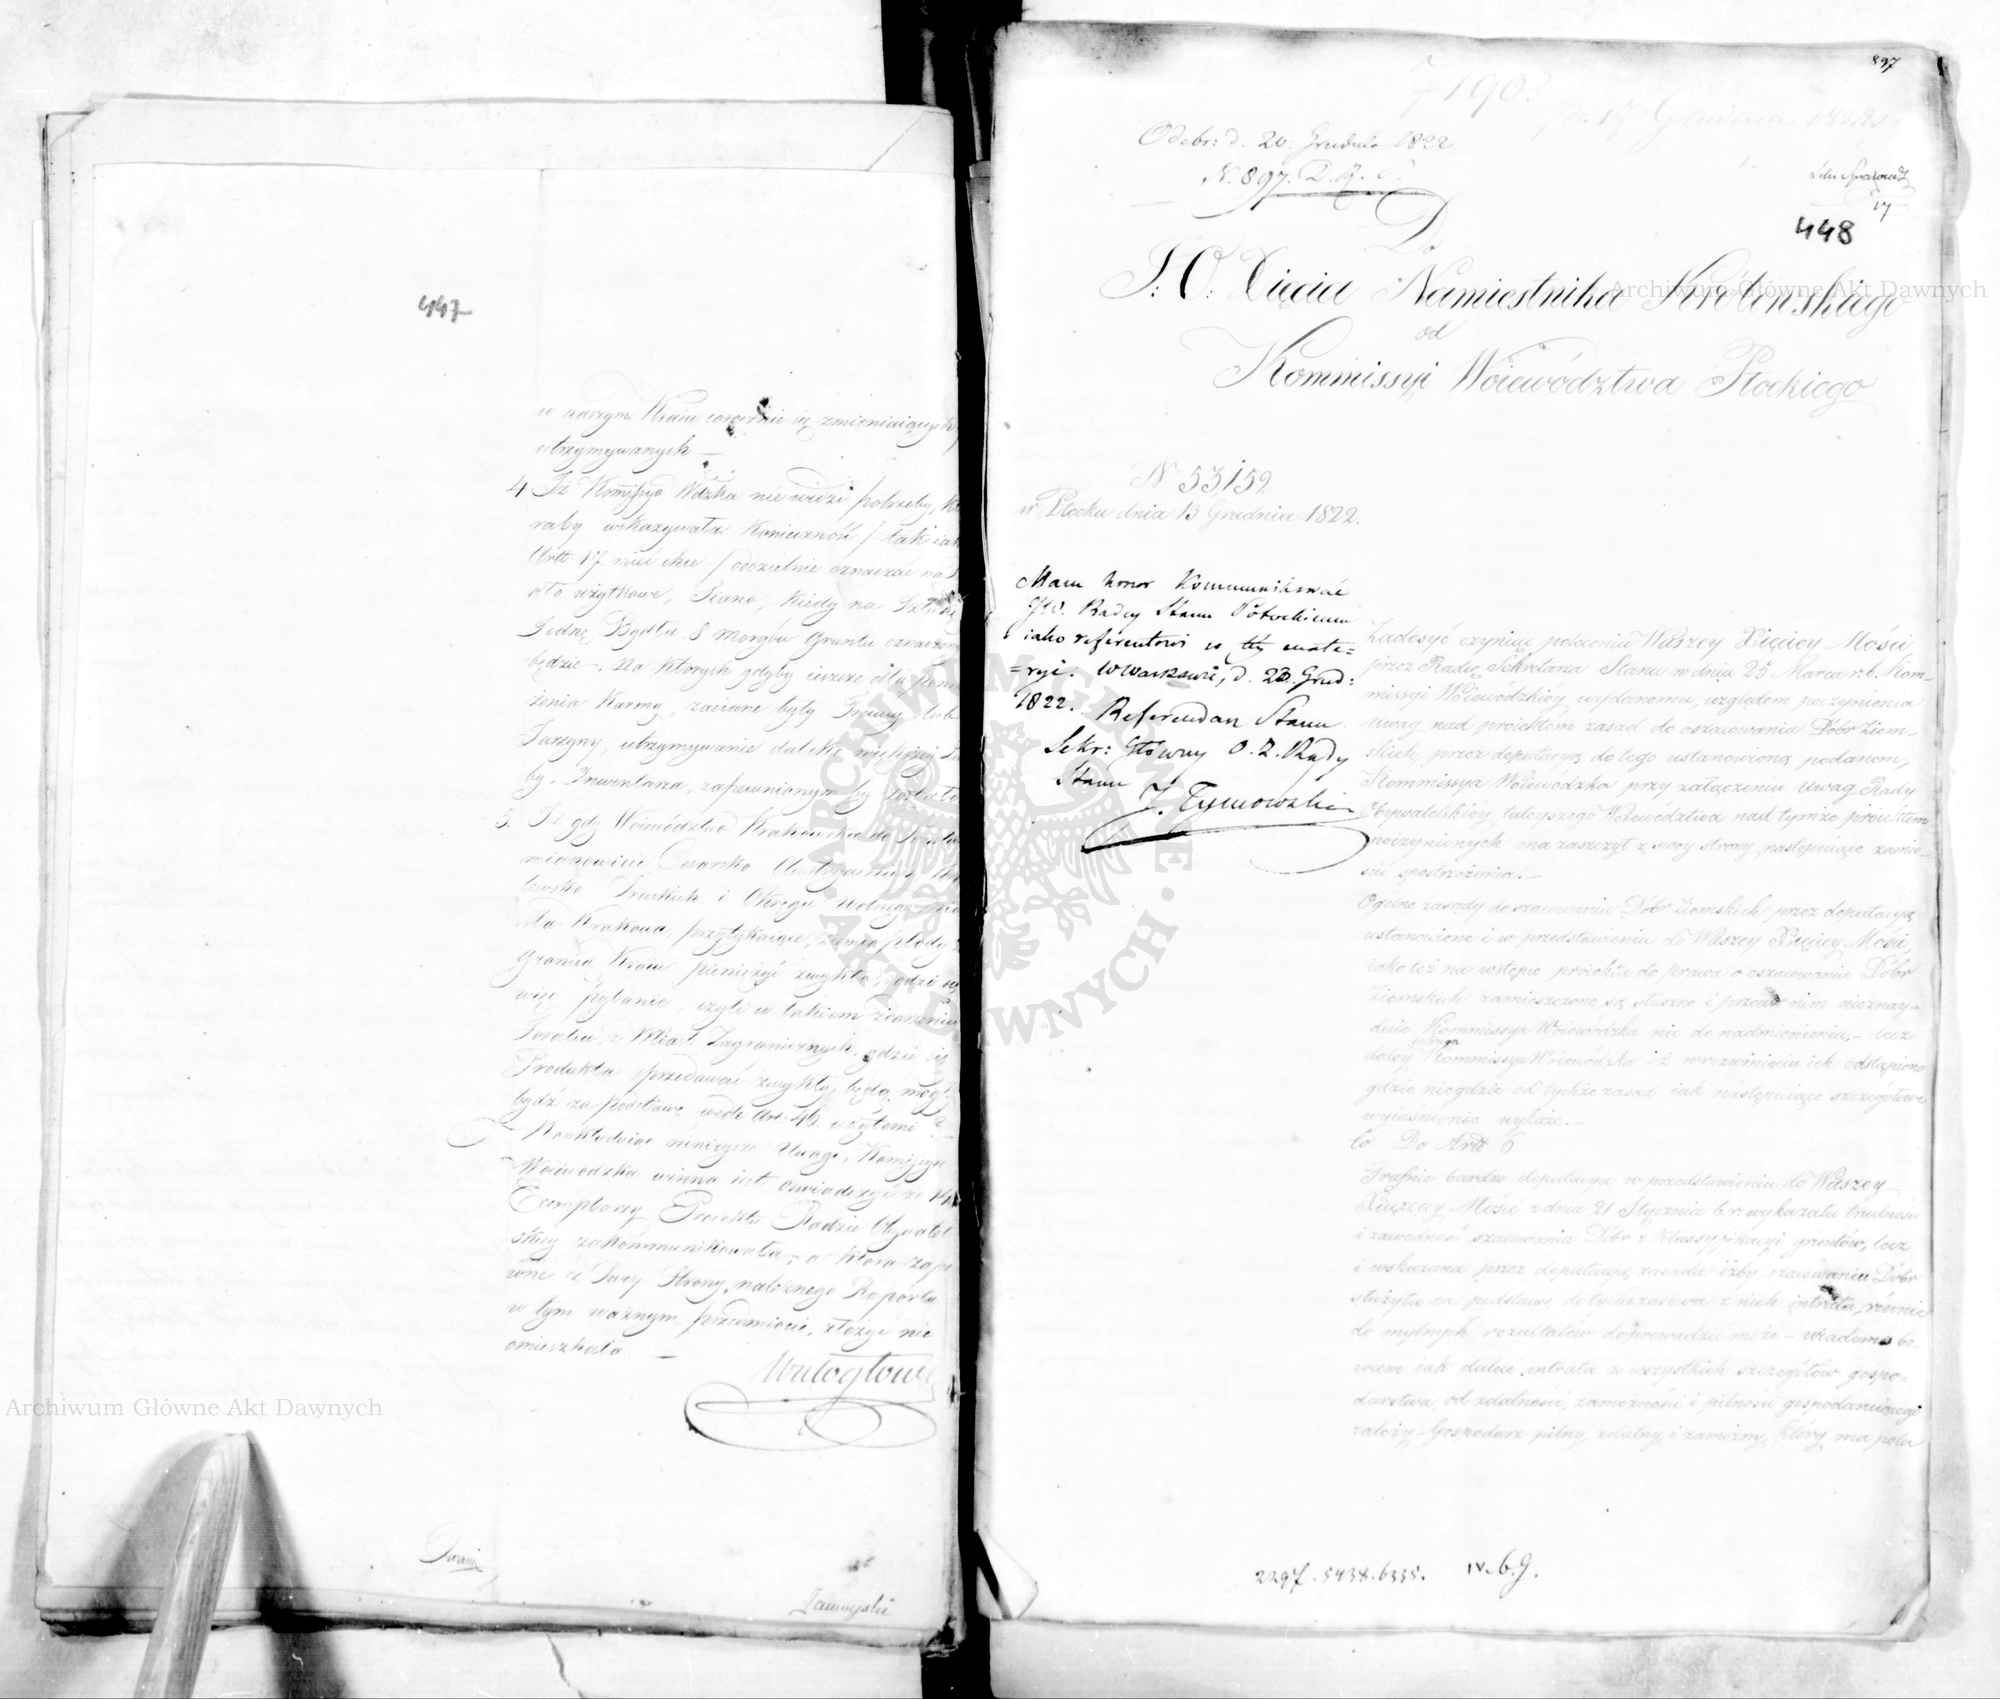 447
w naszym Kraiu corocznie się zmieniaiących
utrzymywanych —
4 Iż Kommissya Wdzka nie widzi potrzeby, któ
raby wskazywała konieczność / tak iak
Artt 17 mieć chce / oddzielnie oznaczać na
Siano, kiedy na Sztukę
Jedną Bydła 8 morgów Gruntu oznaczono
będzie, na których gdyby ieszcze dla pomno
żenia Karmy, zasiane były Trawy lub
Jarzyny, utrzymywanie daleko większej Licz
by Inwentarza, zapewnionym by zostało
5. Iż gdy Województwo Krakowskie do
mianowicie Cesarsko Austryackich
lewsko Pruskich i Okręgu wolnego Mia
sta Krakowa przytykaiąc, Ziemio płody za
granicą Kraiu pieniężyć zwykło, zachodzi
więc pytanie, czyli w takiem zdarzeniu
z Miast Zagranicznych, gdzie się
Produkta sprzedawać zwykły, będą mogły
bydź za podstawę wedle Art: 46 użytemi?
niniejsze Uwagi, Kommissya
Woiewodzka winna iest oświadczyć że
Exemplarzy Proiektu Radzie Obywatel
skiej zakommunikowała, a która zape
wne ze Swej Strony, należnego Raportu
w tym ważnym przedmiocie, złożyć nie
omieszkała. —
Zamoyski
897
7190.
d. 17 Grudnia 1822
Odebr: d. 20. Grudnia 1822
N. 897. D. R. S.
448
Do
J: O: Xięcia Namiestnika Królewskiego
od
Kommissyi Woiewództwa Płockiego
N 53,159
w Płocku dnia 13 Grudnia 1822.
Mam honor Kommunikować
JW. Radcy Stanu Potockiemu
iako referentowi w tey mate=
=ryi. w Warszawie, d. 23. Grud:
1822. Referendarz Stanu
Sekr: Główny O. Z. Rady
Stanu J. Tymowski
Zadosyć czyniąc poleceniu Waszey Xiążęcey Mości
przez Radcę Sekretarza Stanu w dniu 25 Marca r. b. Kom-
missyi Woiewodzkiey wydanemu, względem poczynienia
uwag nad proiektem zasad do oszacowania Dóbr Ziem-
skich, przez deputacyą do tego ustanowioną podanem,
Kommissya Woiewódzka przy załączeniu Uwag Rady
Obywatelskiéy tuteyszego Woiewództwa nad tymże proiektem
poczynionych ma zaszczyt z swey strony następuiące zamie-
ścić spostrzeżenia. —
Ogólne zasady do szacowania Dóbr Ziemskich przez deputacyą
ustanowione i w przedstawieniu do Waszey Xiążęcey Mości,
iako też na wstępie proiektu do prawa o oszacowaniu Dóbr
Ziemskich zamieszczone są słuszne i przeciw nim nieznay-
duie Kommissya Woiewódzka nic do nadmienienia, — lecz
daley uważa Kommissya Woiewódzka iż w rozwinięciu ich odstąpiono
gdzie niegdzie od tychże zasad iak następuiące szczegółowe
wyiaśnienie wykaże. —
Co Do Artt 6
Trafnie bardzo deputacya w przedstawieniu do Waszey
Xiążęcey Mości z dnia 21 Stycznia b. r. wykazała trudności
i zawodność szacowania Dóbr z klassyfikacyi gruntów, lecz
i wskazana przez deputacyą zasada iżby szacowaniu Dóbr
służyła za podstawę dotychczasowa z nich intrata, równie
do mylnych rezultatów doprowadzić może — wiadomo bo-
wiem iak dalece intrata ze wszystkich szczegółów gospo-
darstwa, od zdatności, zamożności i pilności gospodaruiącego
zależy — Gospodarz pilny, zdatny i zamożny, który ma pola
2297. 5438. 6335. IV. 6. g.
Archiwum Główne Akt Dawnych
Archiwum Główne Akt Dawnych
ARCHIWUM GŁÓWNE AKT DAWNYCH